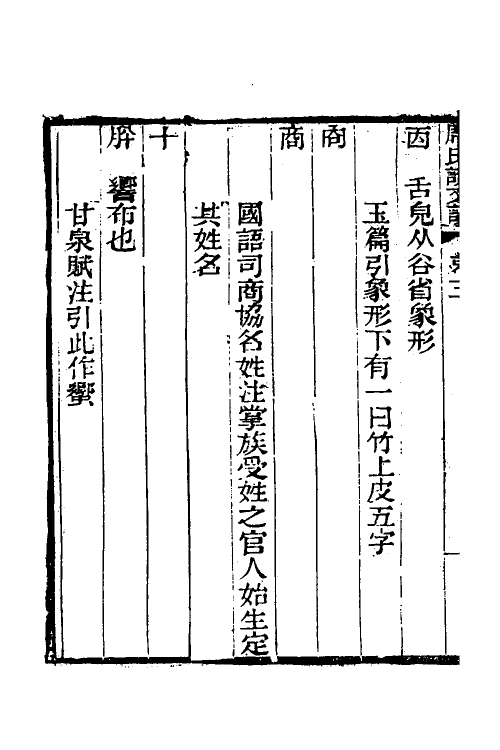 席氏讀說文記 第三
㐁 舌皃从谷省象形
玉篇引象形下有一曰竹上皮五字
㕯
商
國語司商協名姓注掌族受姓之官人始生定
其姓名
十
肸 響布也
甘泉賦注引此作蠁